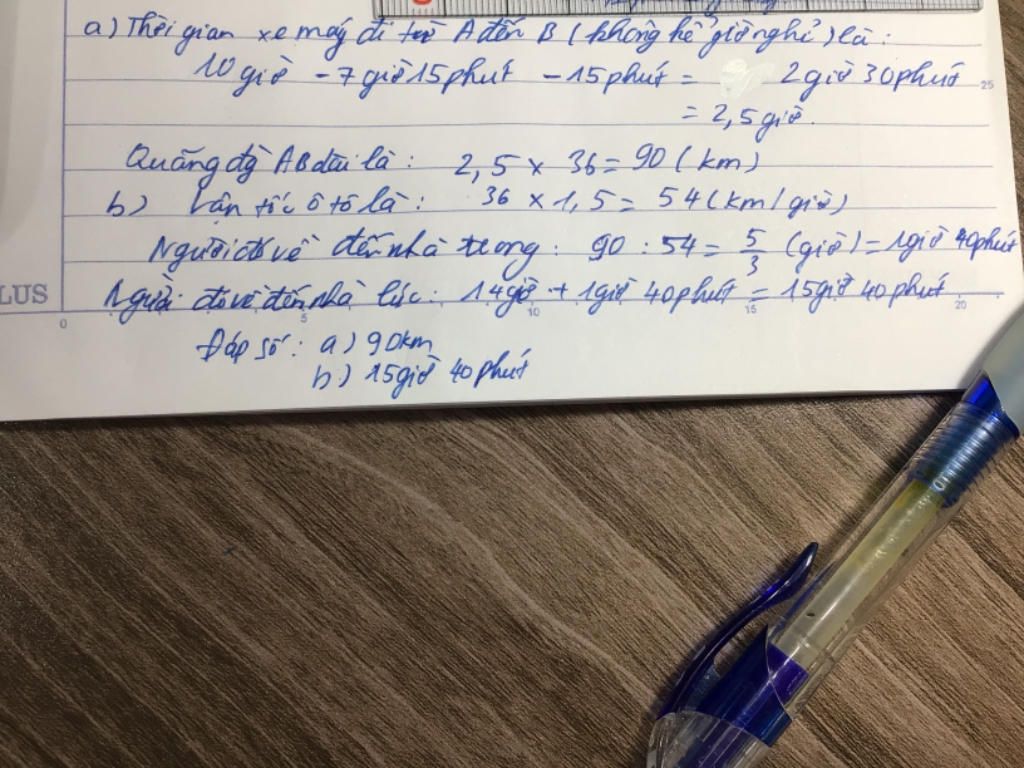 a) Thời gian xe máy đi từ A đến B (không kể giờ nghỉ) là:
10 giờ - 7 giờ 15 phút - 15 phút = 2 giờ 30 phút
25
= 2,5 giờ.
Quãng đg AB dài là: 2,5 x 36 = 90 (km)
b) Vận tốc ô tô là: 36 x 1,5 = 54 (km/giờ)
Người đó về đến nhà trong: 90 : 54 = 5/3 (giờ) = 1 giờ 40 phút
Người đó về đến nhà lúc: 14 giờ + 1 giờ 40 phút = 15 giờ 40 phút
LUS
0 5 10 15 20
Đáp số: a) 90km
b) 15 giờ 40 phút